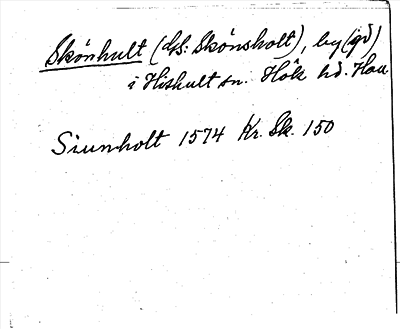 Skönhult (GS: Skönsholt), by (gd)
i Hishult sn. Hök hd. Hall
Siunholt 1574 Kr. Sk. 150